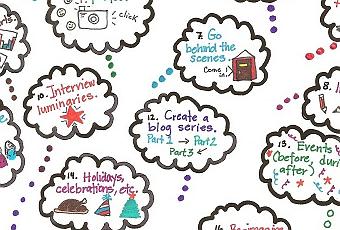 click
7. Go
behind the
scenes.
Come
10. Interview
luminaries.
8.
12. Create a
blog series.
Part 1 → Part 2
Part 3
13. Events
(before, during
after)
14. Holidays,
celebrations, etc.